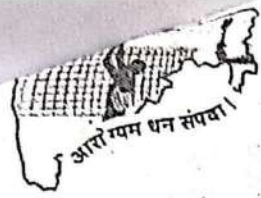 आरोग्यम धन संपदा।